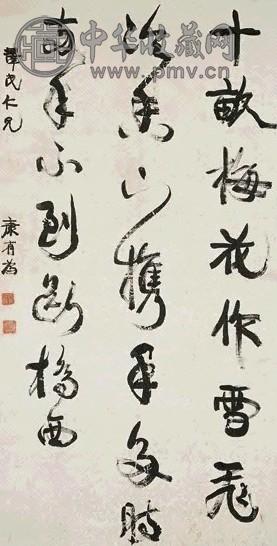 十畝梅花作雪飛
冷香下攜手多時
兩年不到斷橋西
民仁兄
康有為
中华收藏网
www.pmv.cn